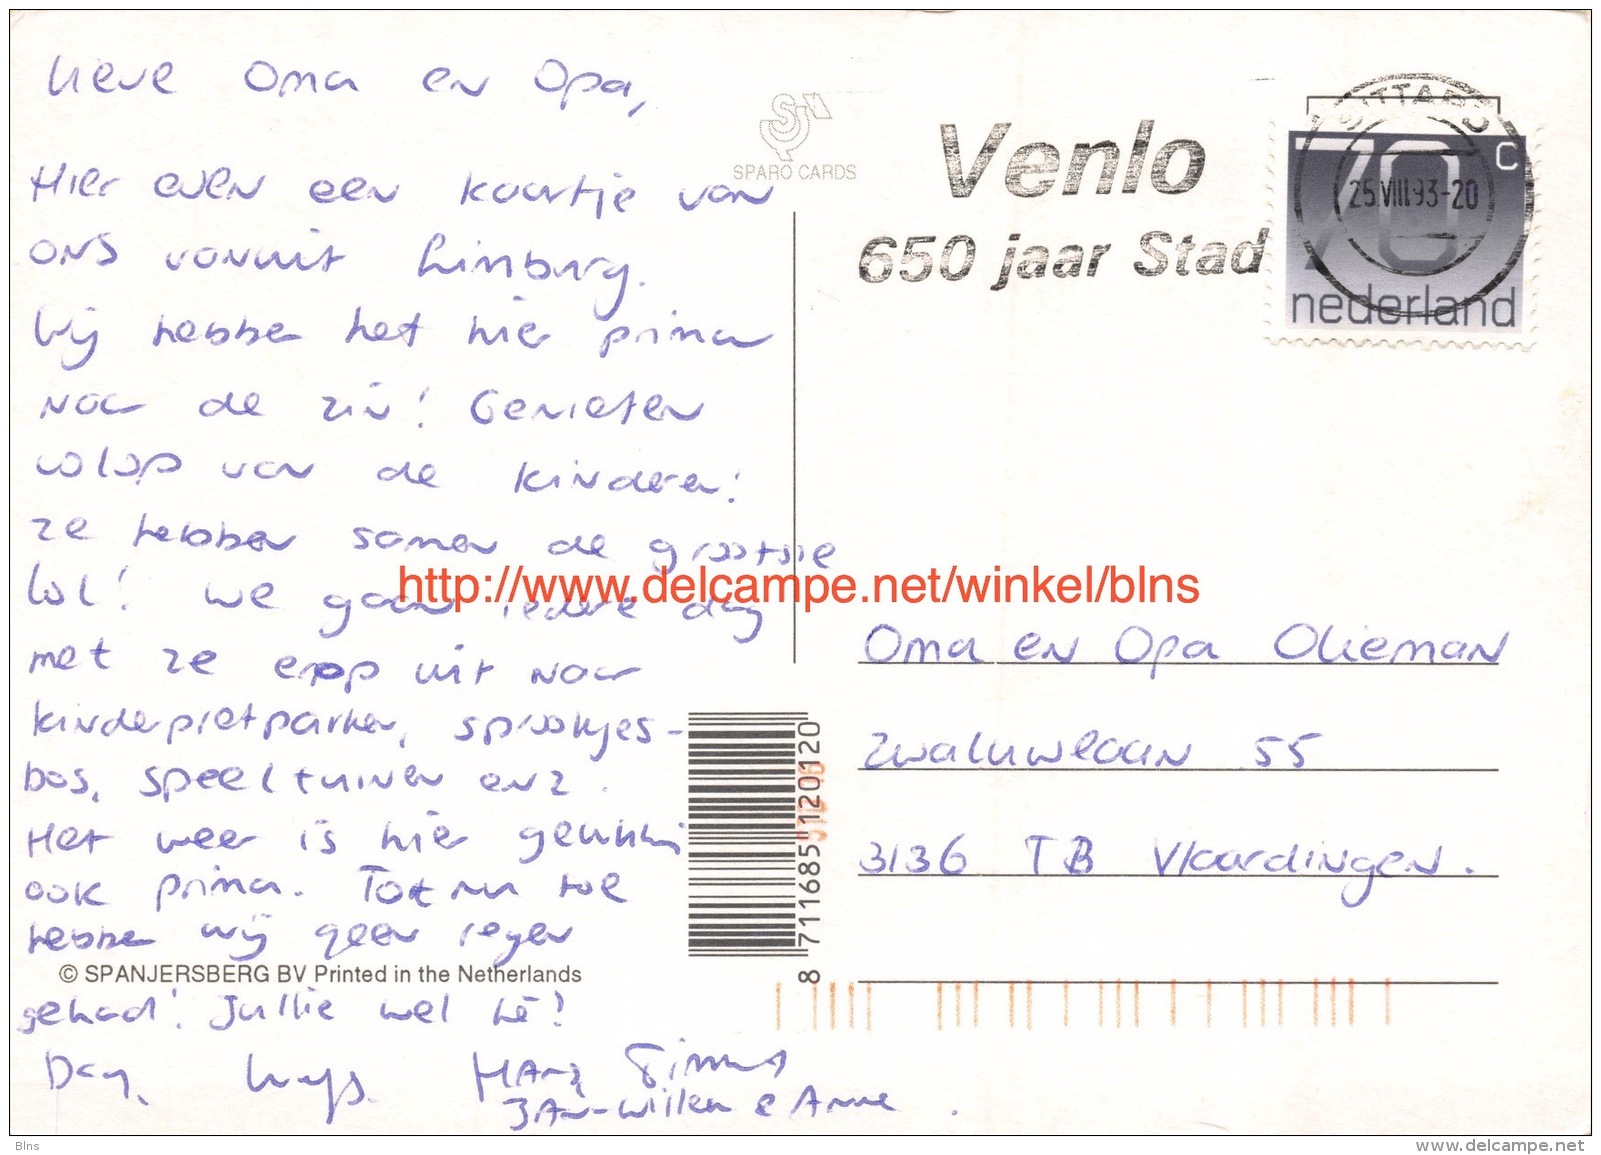 Lieve Oma en Opa,
Hier even een kaartje van
ons vanuit Limburg.
Wij hebben het hier prima
naar de zin! Genieten
volop van de kinderen!
Ze hebben samen de grootste
lol! We gaan iedere dag
met ze erop uit naar
kinderpretparken, sprookjes-
bos, speeltuinen enz.
Het weer is hier gelukkig
ook prima. Tot nu toe
hebben wij geen regen
gehad! Jullie wel hè?
Day,
Jan-Willem & Anne.
© SPANJERSBERG BV Printed in the Netherlands
SPARO CARDS
8 711685 120120
Venlo
650 jaar Stad
SITTARD
25.VIII.93-20
70 c
nederland
Oma en Opa Olieman
Zwaluwlaan 55
3136 TB Vlaardingen.
http://www.delcampe.net/winkel/blns
Blns
www.delcampe.net